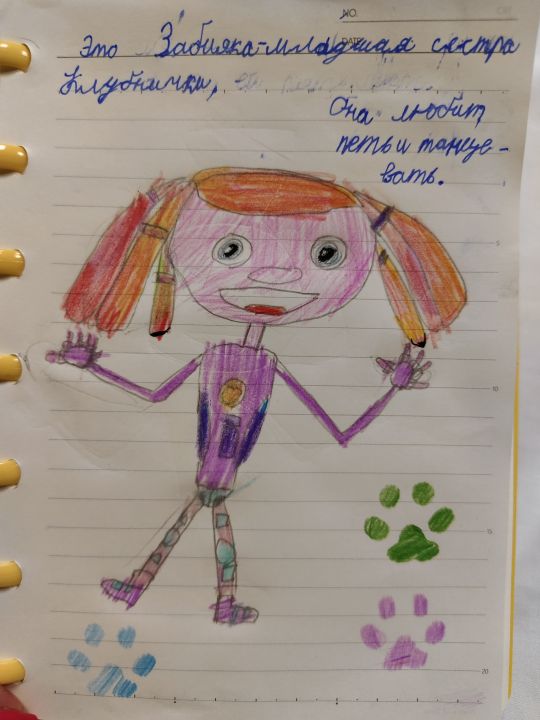 NO.
DATE
Это Забияка-младшая сестра
Клубнички,
Она любит
петь и танцо-
вать.
5
10
15
20